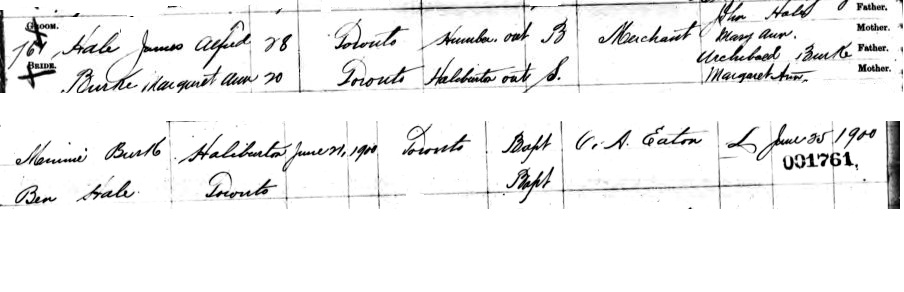 GROOM. John Hale Father.
76 Hale James Alfred 28 Toronto Humber. ont B Merchant Mary Ann. Mother.
BRIDE. Archibald Burke Father.
Burke Margaret Ann 20 Toronto Haliburton ont S. Margaret Ann. Mother.
Minnie Burk Haliburton June 21, 1900 Toronto Bapt A. Eaton L June 25 1900
001761,
Ben Hale Toronto Bapt